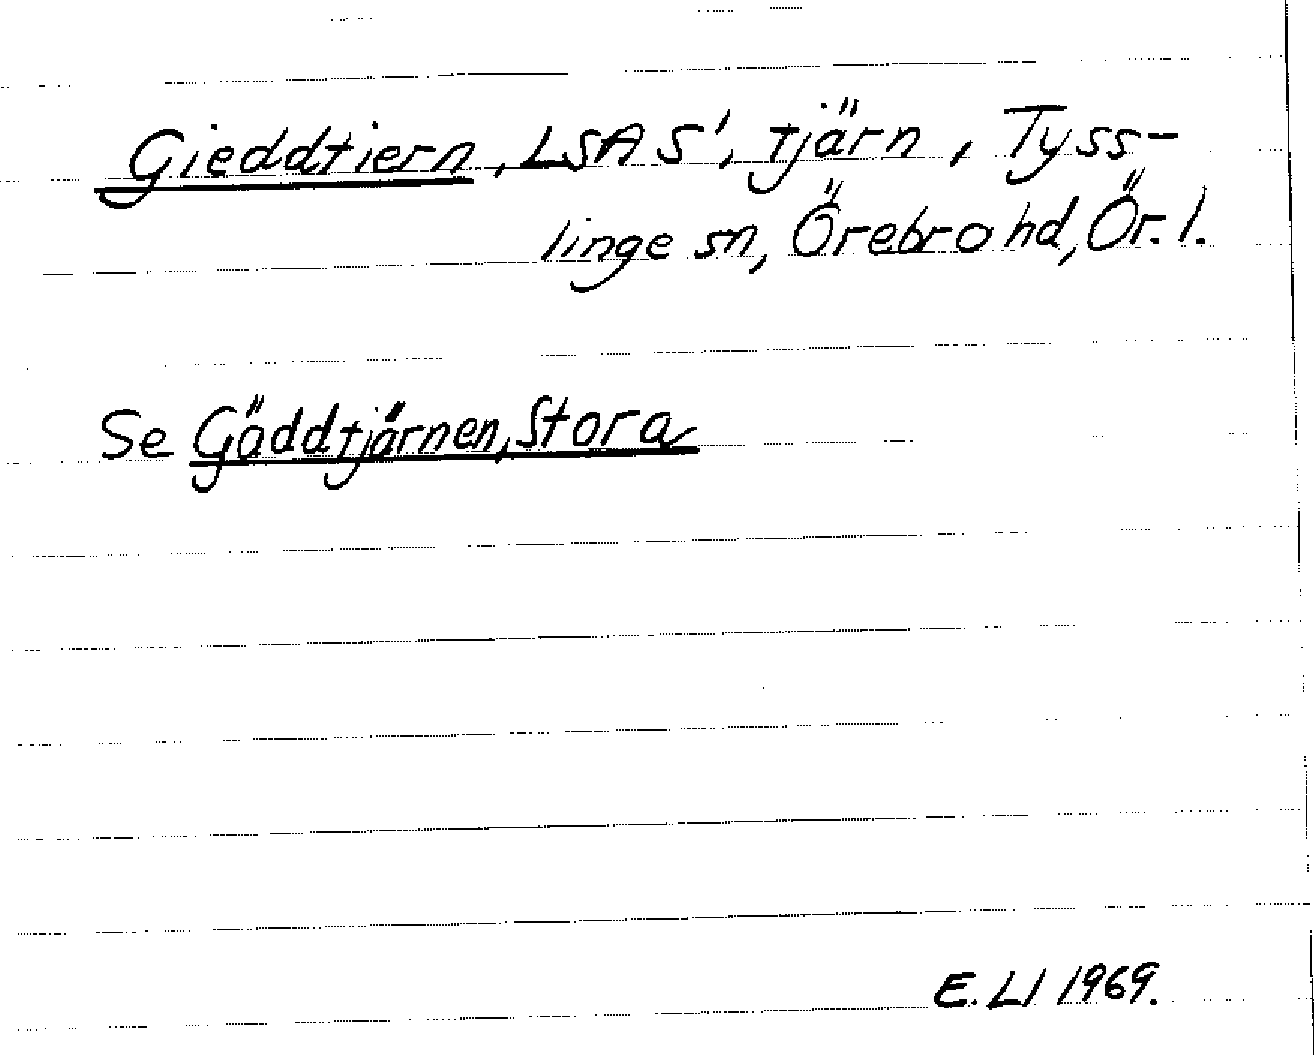 Gieddtiern, LSA S', tjärn, Tyss-
linge sn, Örebro hd, Ör. l.
Se Gäddtjärnen, Stora
E. LJ 1969.